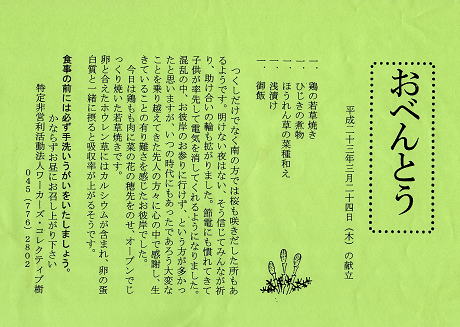 おべんとう
平成二十三年三月二十四日(木)の献立
一.鶏の若草焼き
一.ひじきの煮物
一.ほうれん草の菜種和え
一.浅漬け
一.御飯
つくしだけでなく南の方では桜も咲きだした所もあ
るようです。明けない夜はない、そう信じてみんなが祈
り、助け合いの輪も拡がりました。節電にも慣れてきて
子供が率先して電気を消してくれるようになりました。
混乱の中、お彼岸のお参りに行けず、という方が多かっ
たと思いますが、いつの時代にもあったであろう大変な
ことを乗り越えてきた先人の方々に心の中で感謝し、生
きていることの有り難さを感じたお彼岸でした。
今日は鶏もも肉に菜の花の穂先をのせ、オーブンでじ
っくり焼いた若草焼きです。
卵と合えたホウレン草にはカルシウムが含まれ、卵の蛋
白質と一緒に摂ると吸収率が上がるそうです。
食事の前には必ず手洗いうがいをいたしましょう。
かならずお昼にお召し上がり下さい
特定非営利活動法人ワーカーズ・コレクティブ樹
045(776)2802